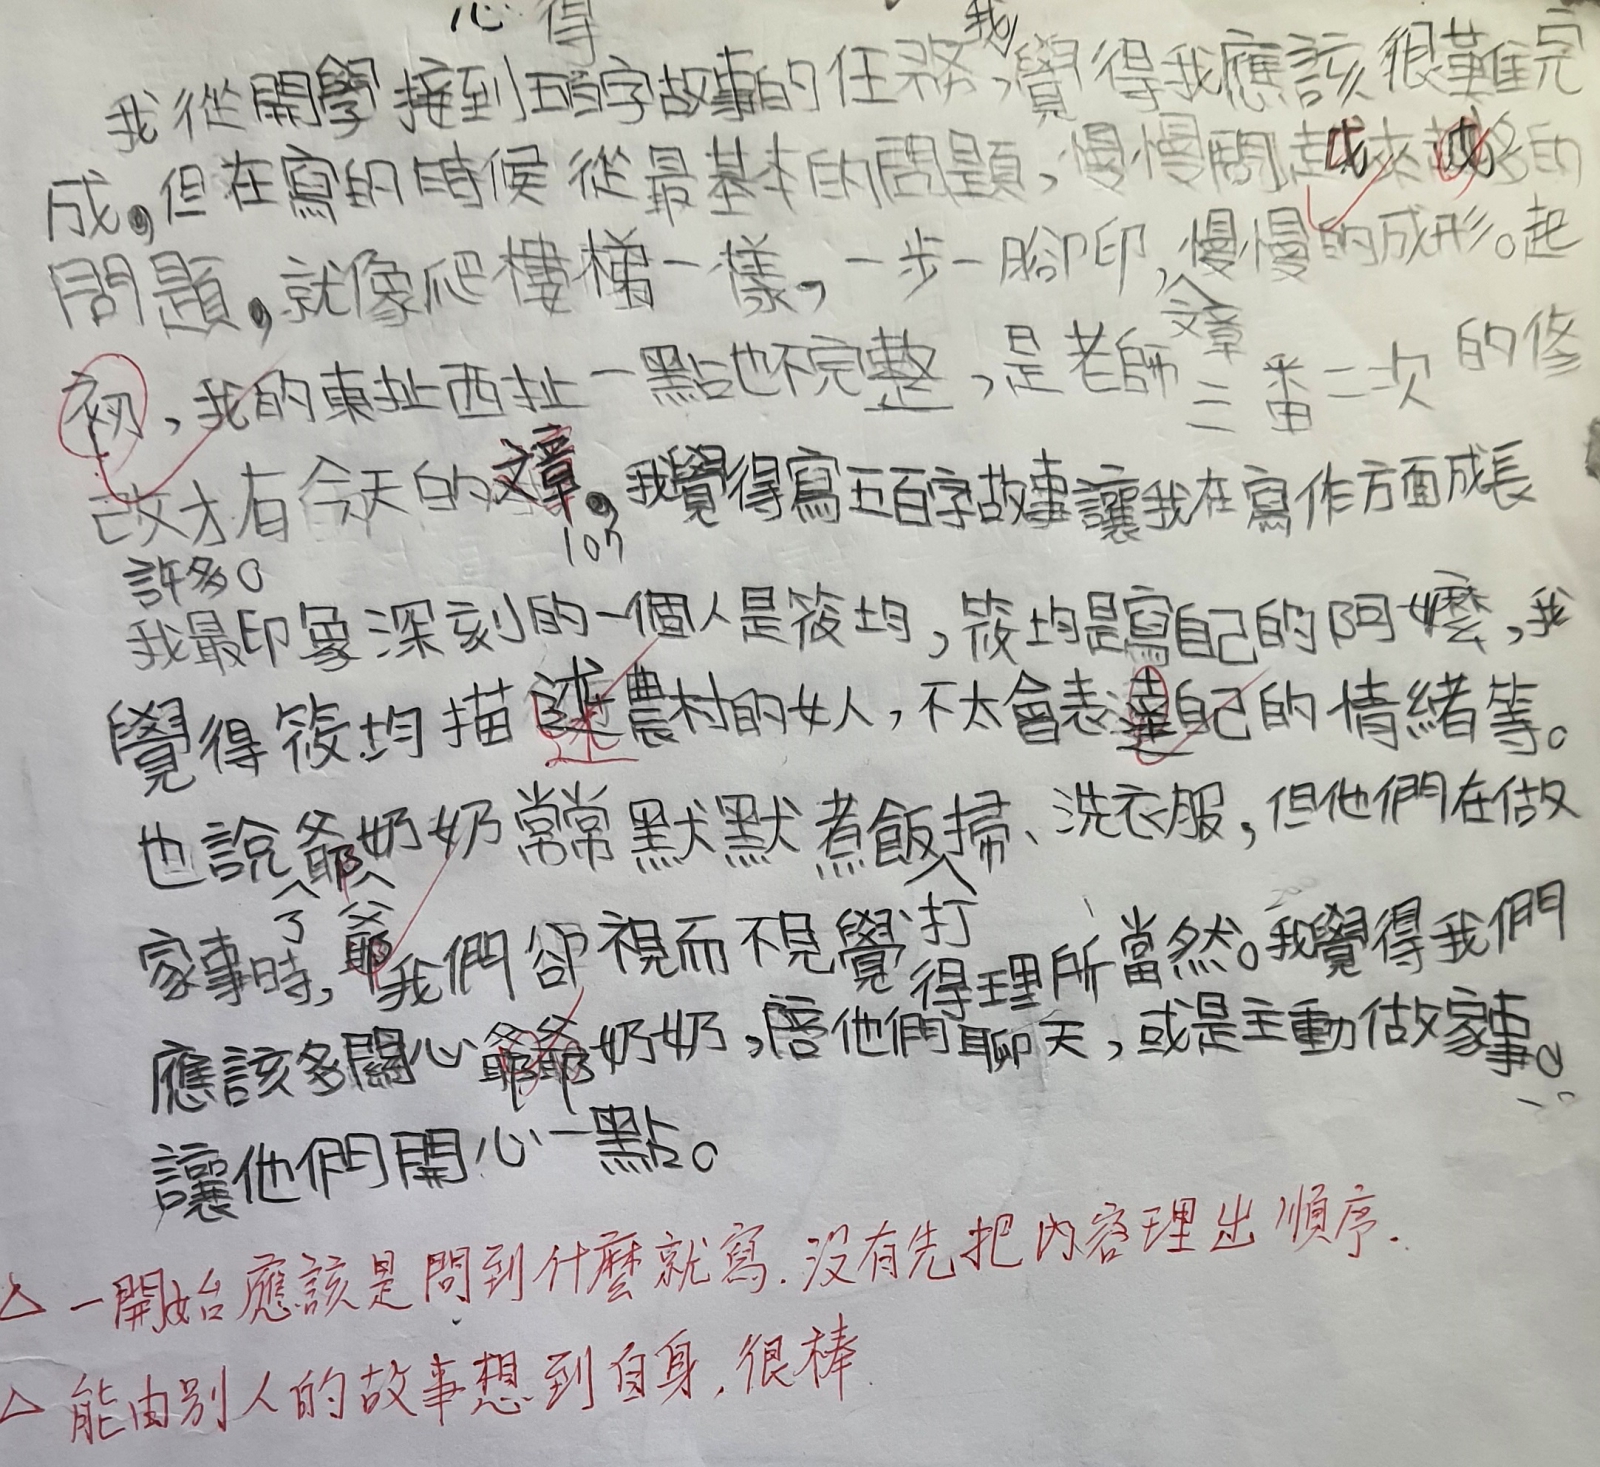 心得
我從開學接到五百字故事的任務,我覺得我應該很難完
成,但在寫的時候從最基本的問題,慢慢問越來越多的
問題,就像爬樓梯一樣,一步一腳印,慢慢的成形。起
初,我的文章東扯西扯一點也不完整,是老師三番二次的修
改才有今天的文章。我覺得寫五百字故事讓我在寫作方面成長
107
許多。
我最印象深刻的一個人是筱均,筱均是寫自己的阿嬤,我
覺得筱均描述農村的女人,不太會表達自己的情緒等。
也說了爺爺奶奶常常默默煮飯打掃、洗衣服,但他們在做
家事時,我們卻視而不見覺得理所當然。我覺得我們
應該多關心爺爺奶奶,陪他們聊天,或是主動做家事。
讓他們開心一點。
△一開始應該是問到什麼就寫.沒有先把內容理出順序.
△能由別人的故事想到自身,很棒